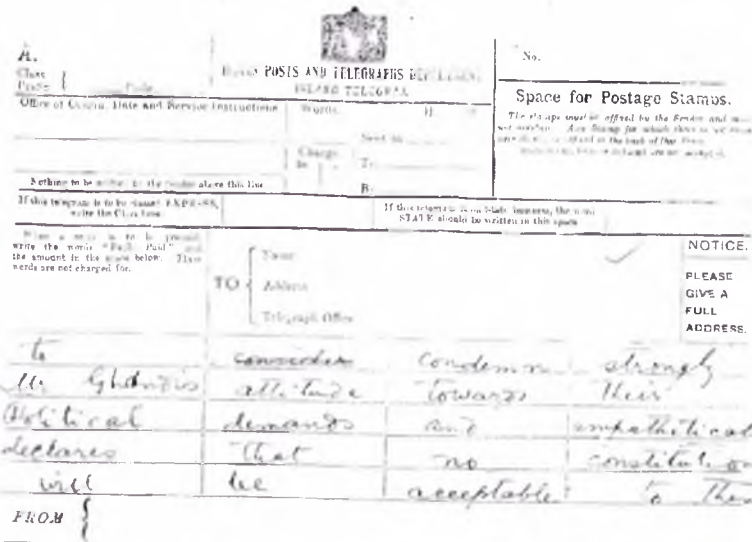 A.
Class
Prefix
Code
POSTS AND TELEGRAPHS
INLAND TELEGRAM
No.
Office of Origin, Date and Service Instructions
Words
Sent
Charge
To
Space for Postage Stamps.
The stamps must be affixed by the Sender and
Nothing to be written by the Sender above this line
If this telegram is to be classed EXPRESS, write the Class here
If this telegram is on State business, the word
STATE should be written in this space
to be prepaid
write the words "Paid" and
the amount in the space below. These
words are not charged for.
TO
Name
Address
Telegraph Office
NOTICE.
PLEASE
GIVE A
FULL
ADDRESS.
to consider condemn strongly
Mr Ghandis attitude towards their
Political demands and emphatically
declares that no constitution
will be acceptable to them
FROM